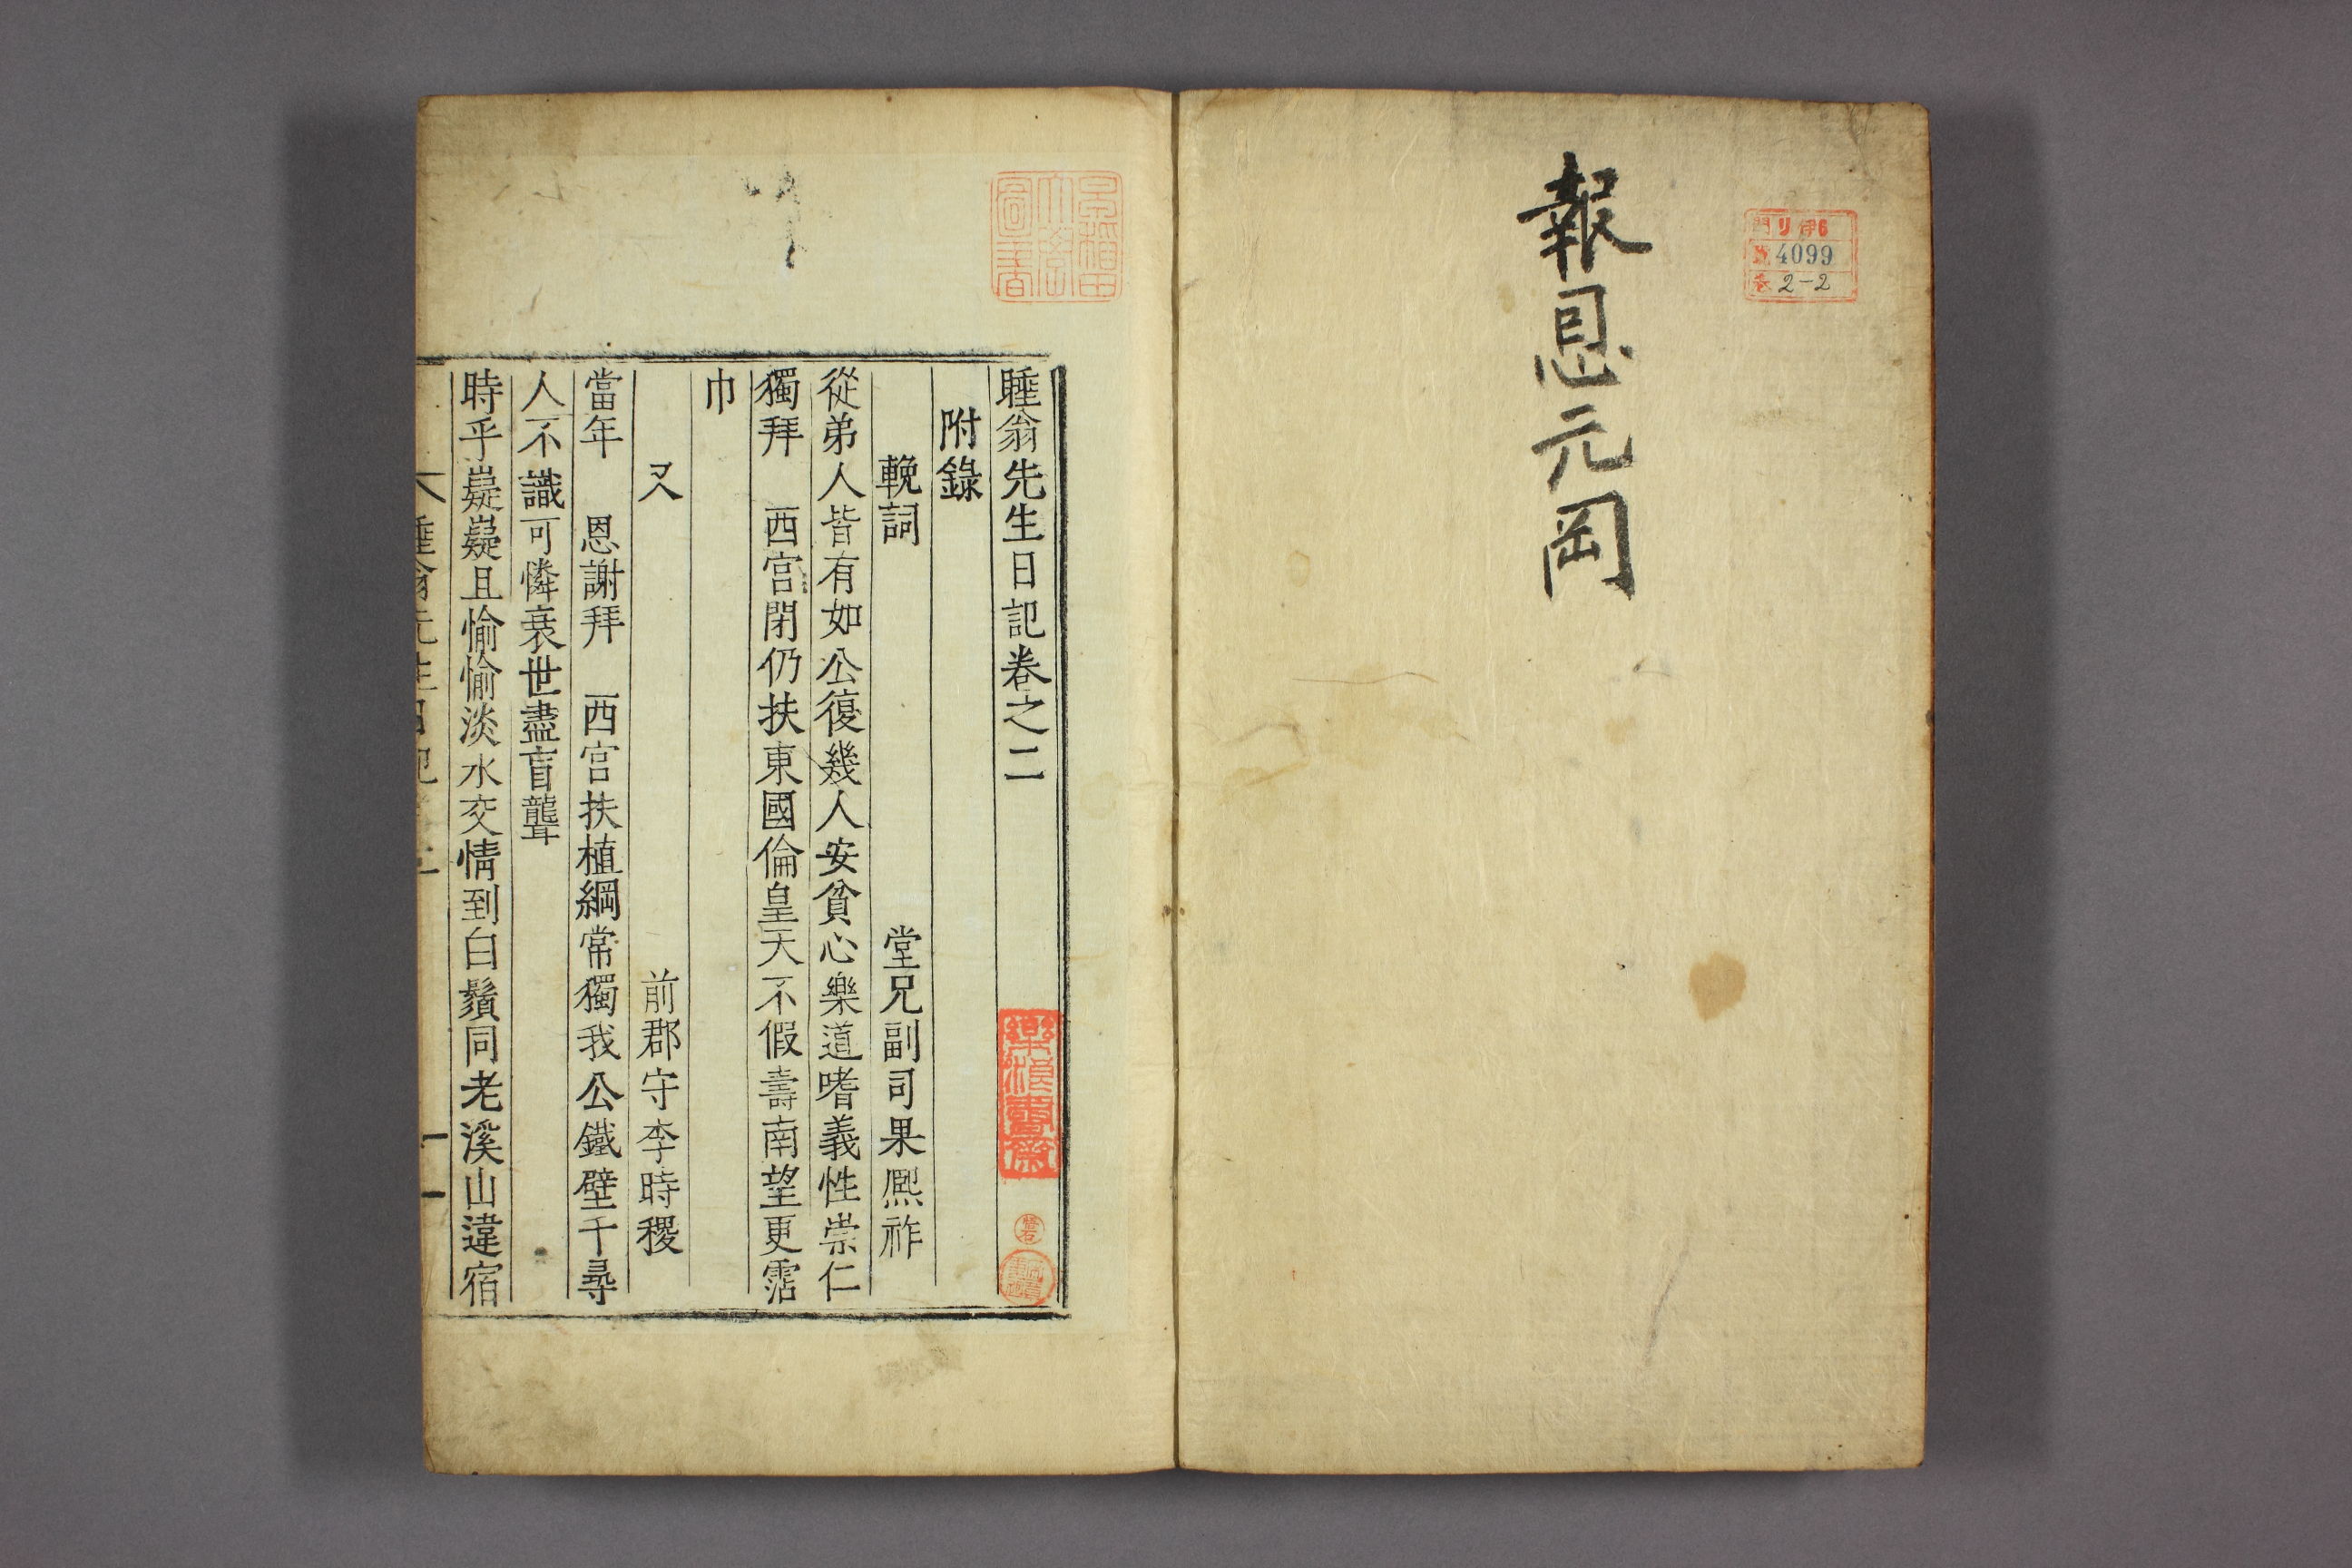 報恩元岡
門 リ 伊6
號 4099
卷 2-2
早稲田
大學
圖書
睡翁先生日記卷之二
附錄
輓詞 堂兄副司果熈祚
從弟人皆有如公復幾人安貧心樂道嗜義性崇仁
獨拜 西宮閉仍扶東國倫皇天不假壽南望更霑
巾
又 前郡守李時稷
當年 恩謝拜 西宮扶植綱常獨我公鐵壁千尋
人不識可憐衰世盡盲聾
時乎嶷嶷且愉愉淡水交情到白鬚同老溪山違宿
睡翁先生日記